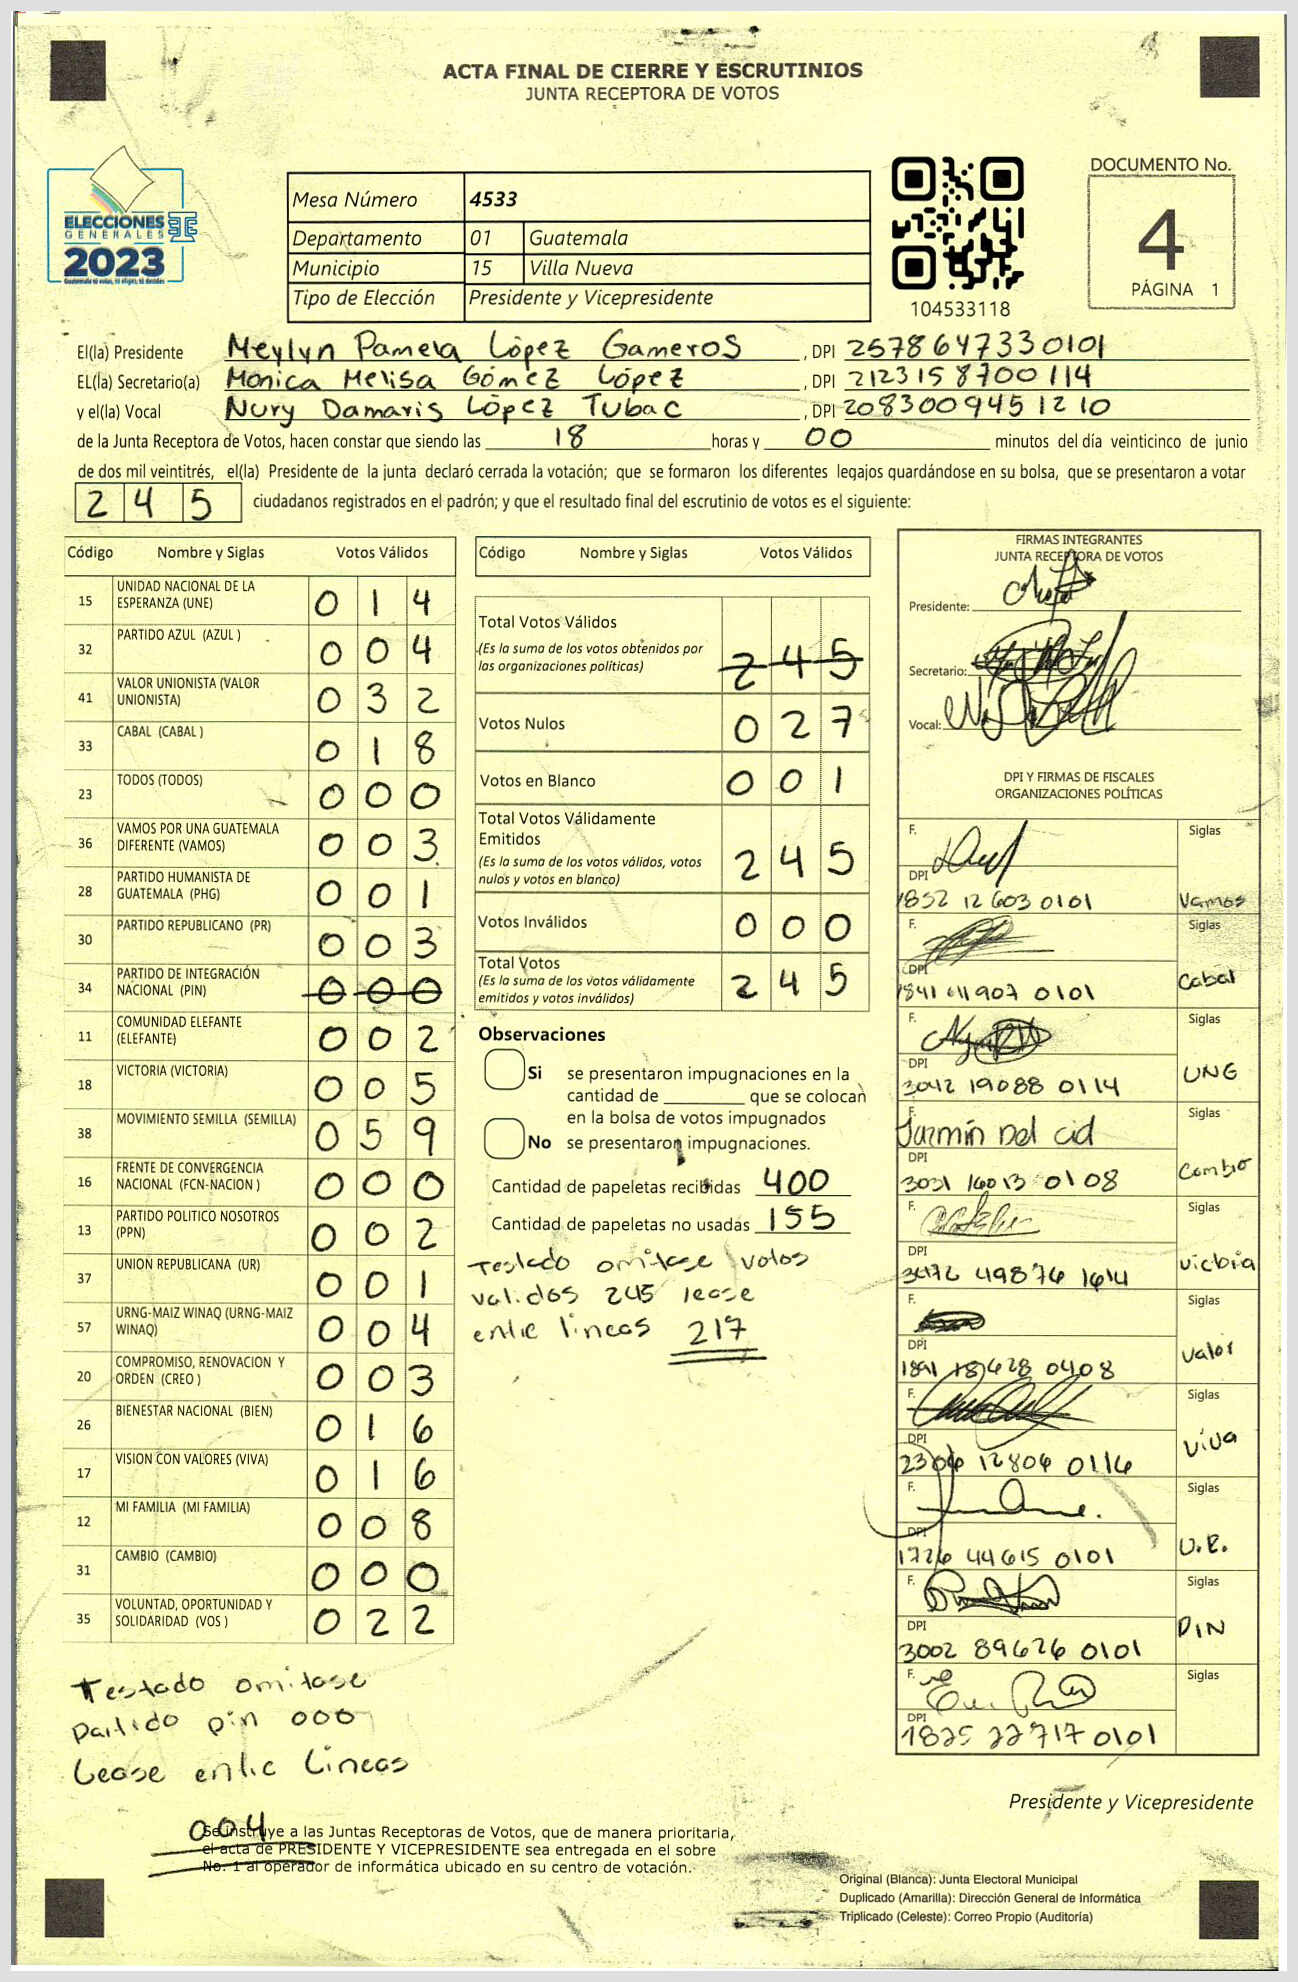 ACTA FINAL DE CIERRE Y ESCRUTINIOS
JUNTA RECEPTORA DE VOTOS
ELECCIONES
GENERALES
2023
Mesa Número 4533
Departamento 01 Guatemala
Municipio 15 Villa Nueva
Tipo de Elección Presidente y Vicepresidente
104533118
DOCUMENTO No.
4
PÁGINA 1
El(la) Presidente Meylyn Pamela López Gameros, DPI 2578647330101
EL(la) Secretario(a) Monica Melisa Gómez López, DPI 2123158700114
y el(la) Vocal Nury Damaris López Tubac, DPI 2083009451210
de la Junta Receptora de Votos, hacen constar que siendo las 18 horas y 00 minutos del día veinticinco de junio
de dos mil veintitrés, el(la) Presidente de la junta declaró cerrada la votación; que se formaron los diferentes legajos quardándose en su bolsa, que se presentaron a votar
245 ciudadanos registrados en el padrón; y que el resultado final del escrutinio de votos es el siguiente:
Código Nombre y Siglas Votos Válidos
15 UNIDAD NACIONAL DE LA ESPERANZA (UNE) 014
32 PARTIDO AZUL (AZUL ) 004
41 VALOR UNIONISTA (VALOR UNIONISTA) 032
33 CABAL (CABAL ) 018
23 TODOS (TODOS) 000
36 VAMOS POR UNA GUATEMALA DIFERENTE (VAMOS) 003
28 PARTIDO HUMANISTA DE GUATEMALA (PHG) 001
30 PARTIDO REPUBLICANO (PR) 003
34 PARTIDO DE INTEGRACIÓN NACIONAL (PIN) 000
11 COMUNIDAD ELEFANTE (ELEFANTE) 002
18 VICTORIA (VICTORIA) 005
38 MOVIMIENTO SEMILLA (SEMILLA) 059
16 FRENTE DE CONVERGENCIA NACIONAL (FCN-NACION ) 000
13 PARTIDO POLITICO NOSOTROS (PPN) 002
37 UNION REPUBLICANA (UR) 001
57 URNG-MAIZ WINAQ (URNG-MAIZ WINAQ) 004
20 COMPROMISO, RENOVACION Y ORDEN (CREO ) 003
26 BIENESTAR NACIONAL (BIEN) 016
17 VISION CON VALORES (VIVA) 016
12 MI FAMILIA (MI FAMILIA) 008
31 CAMBIO (CAMBIO) 000
35 VOLUNTAD, OPORTUNIDAD Y SOLIDARIDAD (VOS ) 022
Testado omitase
partido pin 000
Lease entre Lineas
004
Código Nombre y Siglas Votos Válidos
Total Votos Válidos 245
(Es la suma de los votos obtenidos por
las organizaciones políticas)
Votos Nulos 027
Votos en Blanco 001
Total Votos Válidamente
Emitidos 245
(Es la suma de los votos válidos, votos
nulos y votos en blanco)
Votos Inválidos 000
Total Votos 245
(Es la suma de los votos válidamente
emitidos y votos inválidos)
Observaciones
Si se presentaron impugnaciones en la
cantidad de que se colocan
en la bolsa de votos impugnados
No se presentaron impugnaciones.
Cantidad de papeletas recibidas 400
Cantidad de papeletas no usadas 155
Testado omitase votos
validos 245 lease
entre lineas 217
FIRMAS INTEGRANTES
JUNTA RECEPTORA DE VOTOS
Presidente:
Secretario:
Vocal:
DPI Y FIRMAS DE FISCALES
ORGANIZACIONES POLÍTICAS
F. Siglas
DPI
1852 12603 0101 Vamos
F. Siglas
DPI
1841 011907 0101 Cabal
F. Siglas
DPI
3042 19088 0114 UNE
F. Siglas
Jazmín Del cid
DPI
3031 16013 0108 Cambio
F. Siglas
DPI
3472 49876 1614 victoria
F. Siglas
DPI
1891 18628 0408 valor
F. Siglas
DPI
2306 12806 0116 viva
F. Siglas
DPI
1726 44615 0101 U.R.
F. Siglas
DPI
3002 89626 0101 PIN
F. Siglas
DPI
1825 22717 0101
Presidente y Vicepresidente
Se instruye a las Juntas Receptoras de Votos, que de manera prioritaria,
el acta de PRESIDENTE Y VICEPRESIDENTE sea entregada en el sobre
No. 1 al operador de informática ubicado en su centro de votación.
Original (Blanca): Junta Electoral Municipal
Duplicado (Amarilla): Dirección General de Informática
Triplicado (Celeste): Correo Propio (Auditoría)